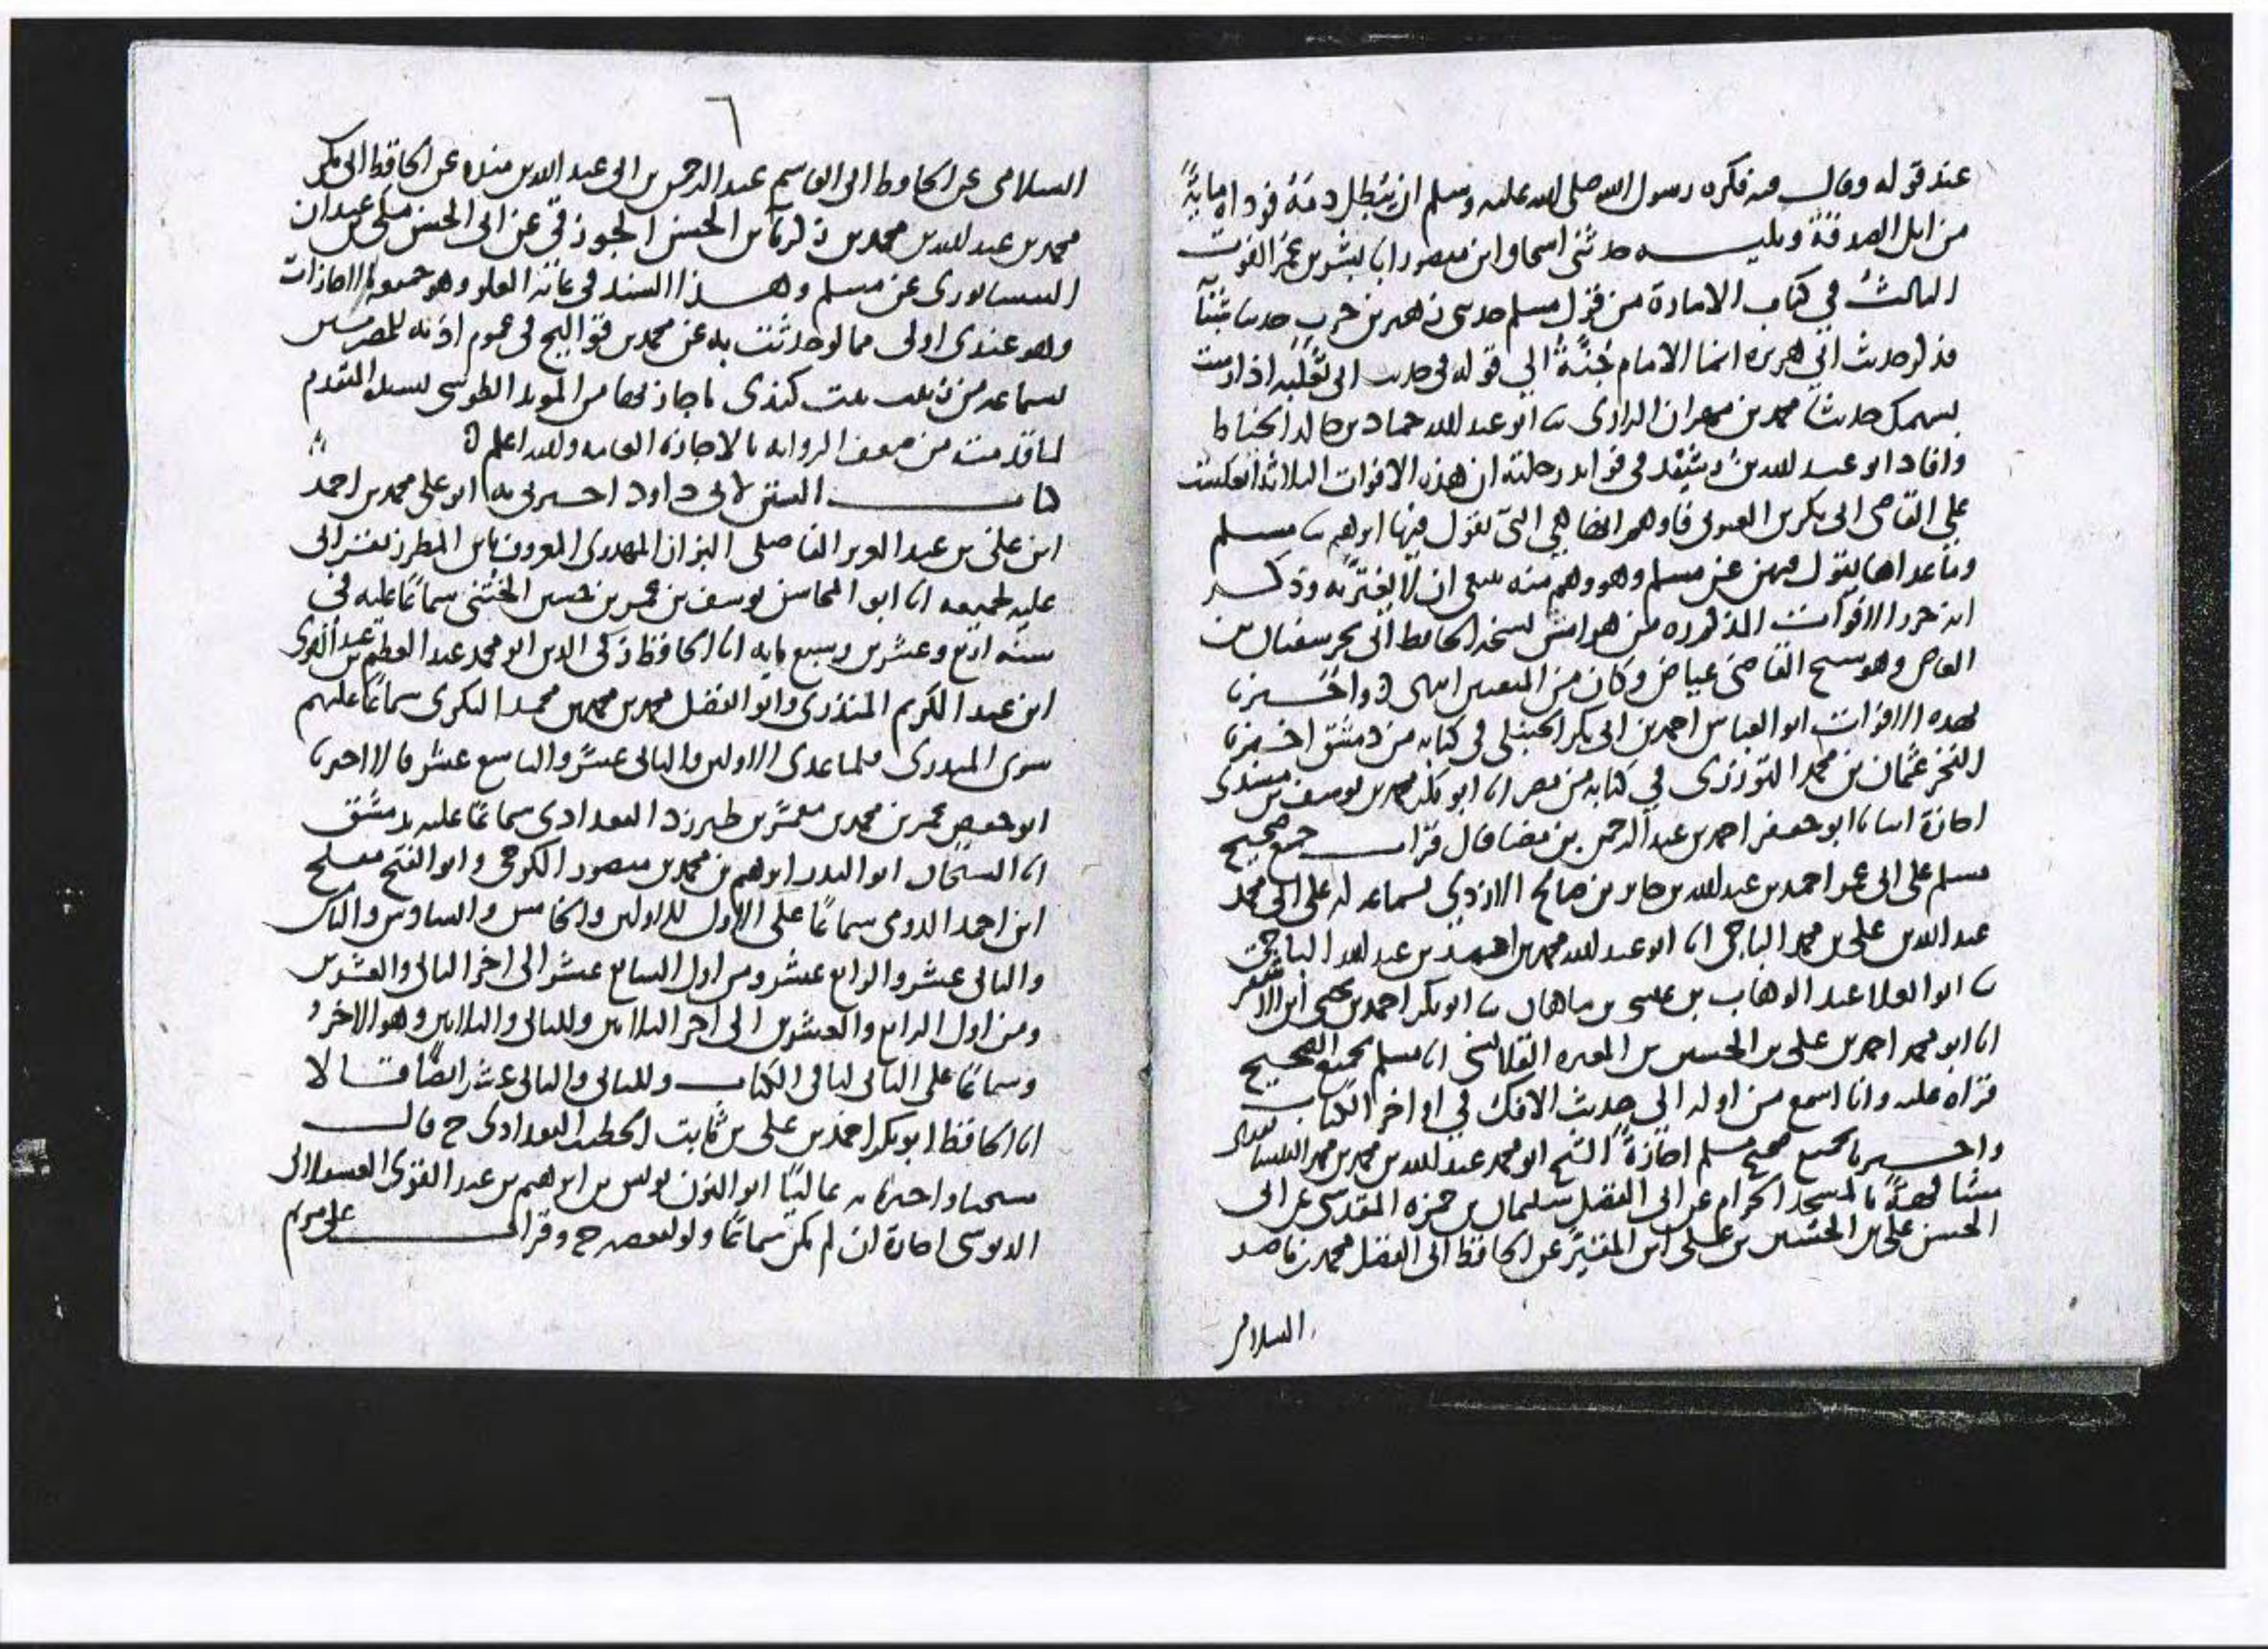 عند قوله وقال فيه فكره رسول الله صلى الله عليه وسلم ان يبطل دمه فوداه مائة
من ابل الصدقة ويليـــه حدثني اسحاق ابن منصور انا بشر بن عمر الفوت
الثالث في كتاب الامارة من قول مسلم حدثني زهير بن حرب حدثنا شبابة
فذكر حديث ابي هريرة انما الامام جنة الى قوله في حديث ابي ثعلبة اذا رميت
بسهمك حدثنا محمد بن مهران الرازي ثنا ابو عبد الله حماد بن خالد الخياط
وافاد ابو عبد الله بن رشيد في فوايد رحلته ان هذه الافوات الثلاثة انعكست
على القاضي ابي بكر بن العربي فاوهم انها هي التي نقول فيها ابرهيم ثنا مسلم
وما عداها يقول فيهن عن مسلم وهو وهم منه ينبغي ان لا يغتر به وذكـــر
انه حرر الافوات المذكورة من هوامش نسخة الحافظ ابي بحر سفيان بن
العاص وهو شيخ القاضي عياض وكان من المتقنين انتهى واخـــبرنا
بهذه الافوات ابو العباس احمد بن ابي بكر الحنبلي في كتابه من دمشق اخبرنا
الفخر عثمان بن محمد التوزري في كتابه من مصر انا ابو بكر محمد بن يوسف بن مسدي
اجازة انبانا ابو جعفر احمد بن عبد الرحمن بن مضا قال قرات جميع صحيح
مسلم على ابي عمر احمد بن عبد الله بن جابر بن صالح الازدي بسماعه له على ابي محمد
عبد الله بن علي بن محمد الباجي انا ابو عبد الله محمد بن احمد بن عبد الله الباجي
ثنا ابو العلا عبد الوهاب بن عيسى بن ماهان ثنا ابو بكر احمد بن يحيى ابن الاشقر
انا ابو محمد احمد بن علي بن الحسين بن المغيرة القلانسي انا مسلم بجميع الصحيح
قراة عليه وانا اسمع من اوله الى حديث الافك في اواخر الكتاب
واخـــبرنا بجميع صحيح مسلم اجازة الشيخ ابو محمد عبد الله بن محمد بن محمد النيسابوري
مشافهة بالمسجد الحرام عن ابي الفضل سليمان بن حمزة المقدسي عن ابي
الحسن علي بن الحسين بن علي ابن المقير عن الحافظ ابي الفضل محمد بن ناصر
السلامي
٦
السلامي عن الحافظ ابي القاسم عبد الرحمن بن ابي عبد الله بن منده عن الحافظ ابي بكر
محمد بن عبد الله بن محمد بن زكريا بن الحسن الجوزقي عن ابي الحسن مكي بن عبدان
النيسابوري عن مسلم وهـــذا السند في غاية العلو وهو جميعه بالاجازات
وهو عندي اولى مما لو حدثت به عن محمد بن قواليح في عموم اذنه للمصريين
بسماعه من زينب بنت كندي باجازتها من المويد الطوسي بسنده المتقدم
لما قدمت من ضعف الرواية بالاجازة العامة والله اعلم
كتاب السنن لابي داود اخبرني به ابو علي محمد بن احمد
ابن علي بن عبد العزيز الفاضلي البزاز المهدوي المعروف بابن المطرز بقراتي
عليه لجميعه انا ابو المحاسن يوسف بن عمر بن حسين الختني سماعا عليه في
سنة اربع وعشرين وسبع ماية انا الحافظ زكي الدين ابو محمد عبد العظيم بن عبد القوي
ابن عبد الكريم المنذري وابو الفضل محمد بن محمد بن محمد البكري سماعا عليهم
سوى المهدوي فلما عدى الاولين والثاني عشر والتاسع عشر قالا اخبرنا
ابو حفص عمر بن محمد بن معمر بن طبرزد البغدادي سماعا عليه بدمشق
انا الشيخان ابو البدر ابرهيم بن محمد بن منصور الكرخي وابو الفتح مفلح
ابن احمد الدومي سماعا على الاول للاولين والخامس والسادس والثامن
والثاني عشر والرابع عشر ومن اول السابع عشر الى اخر الثاني والعشرين
ومن اول الرابع والعشرين الى اخر الثلاثين وللثاني والثلاثين وهو الاخر
وسماعا على الثاني لباقي الكتاب وللثاني والثاني عشر ايضا قـــالا
انا الحافظ ابو بكر احمد بن علي بن ثابت الخطيب البغدادي ح قال
شيخنا واخبرنا به عاليا ابو النون يونس بن ابرهيم بن عبد القوي العسقلاني
الدبوسي اجازة ان لم يكن سماعا ولو لبعضه ح وقرات على مريم